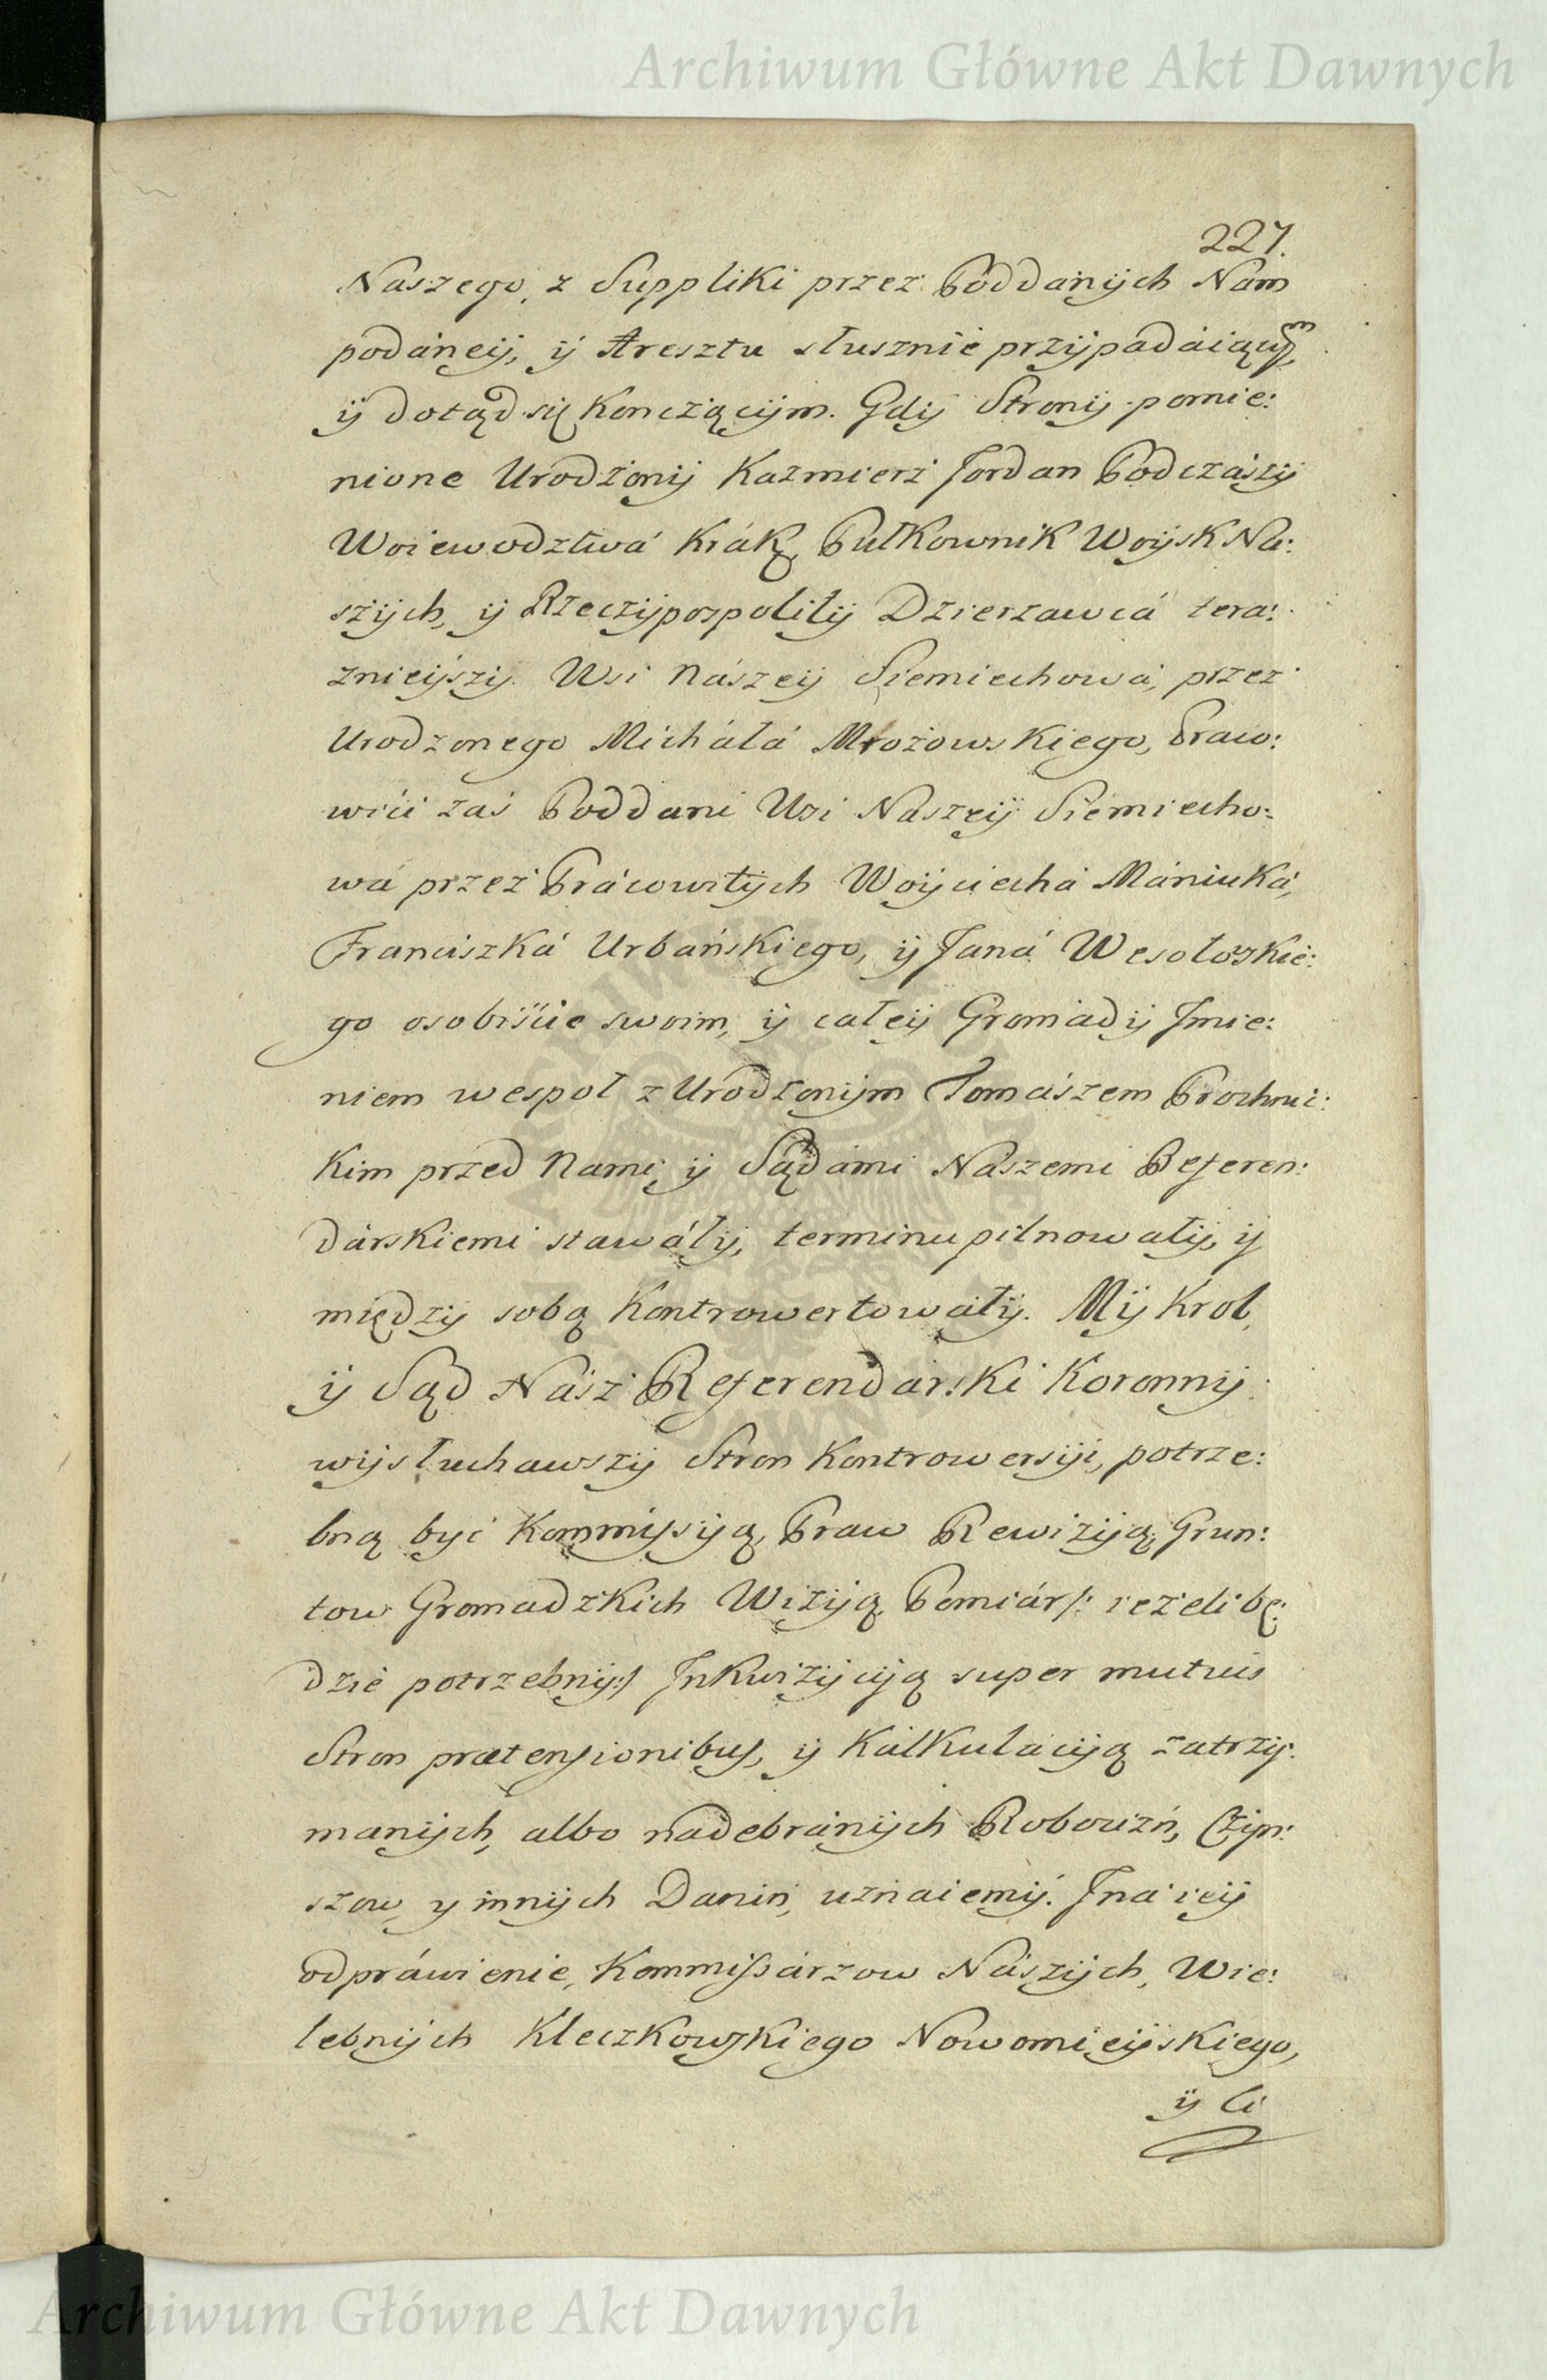 Archiwum Główne Akt Dawnych
227.
Naszego, z Suppliki przez Poddanÿch Nam
podáneÿ, ÿ Aresztu słusznie przÿpadáiącym,
ÿ dotąd się Konczącÿm. Gdÿ Stronÿ pomie:
nione Urodzonÿ Kazmierz Jordan Podczászÿ
Woiewodztwá Krák. Pułkownik Woÿsk Na:
szÿch, ÿ Rzeczÿpospolitÿ Dzierzawcá tera:
znieÿszÿ Wsi Nászeÿ Siemiechowá, przez
Urodzonego Micháłá Mrozowskiego, Praco:
wici zas Poddani Wsi Naszeÿ Siemiecho:
wá przez Prácowitÿch Woÿciechá Mániuká,
Franciszká Urbańskiego, ÿ Janá Wesołoskie:
go osobiście swoim, ÿ całeÿ Gromadÿ Jmie:
niem wespoł z Urodzonÿm Tomászem Prochnic:
kim przed Nami, ÿ Sądámi Nászemi Referen:
dárskiemi stawáłÿ, terminu pilnowałÿ, ÿ
międzÿ sobą Kontrowertowałÿ. Mÿ Krol,
ÿ Sąd Nász Referendárski Koronnÿ
wÿsłuchawszÿ Stron Kontrowersÿi, potrze:
bną bÿc Kommissÿą, Praw Rewizÿą, Grun:
tow Gromadzkich Wizÿą, Pomiár /: iezeli bę:
dzie potrzebnÿ :/ Jnkwizÿcÿą super mutuis
Stron prætensionibus, ÿ Kálkulácÿą zatrzÿ:
manÿch, albo nádebránÿch Robocizń, Czÿn:
szow, y innÿch Danin, uznaiemÿ. Jná ieÿ
odpráwienie, Kommissárzow Nászÿch, Wie:
lebnÿch Kleczkowskiego Nowomieÿskiego,
ÿ Ci
Archiwum Główne Akt Dawnych